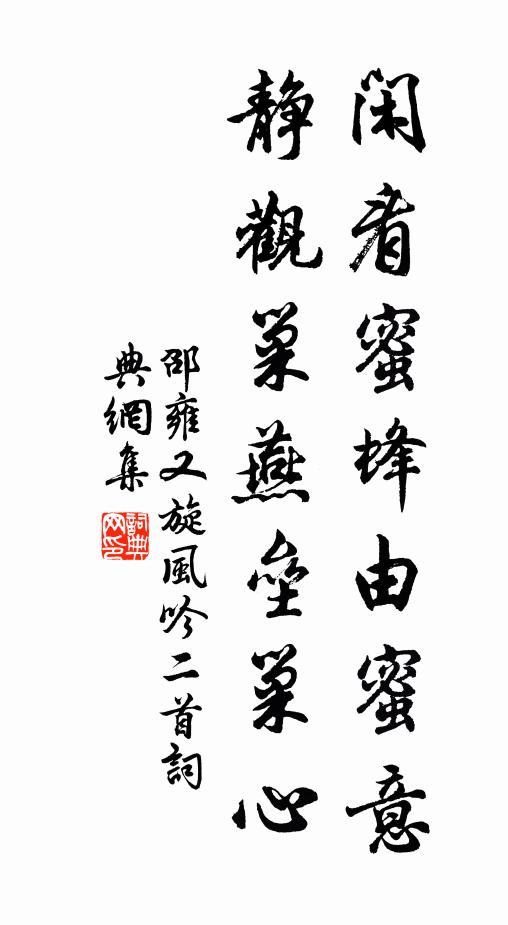 閑看蜜蜂由蜜意
靜觀巢燕壘巢心
邵雍又旋風吟二首詞
典網集
詞典網印